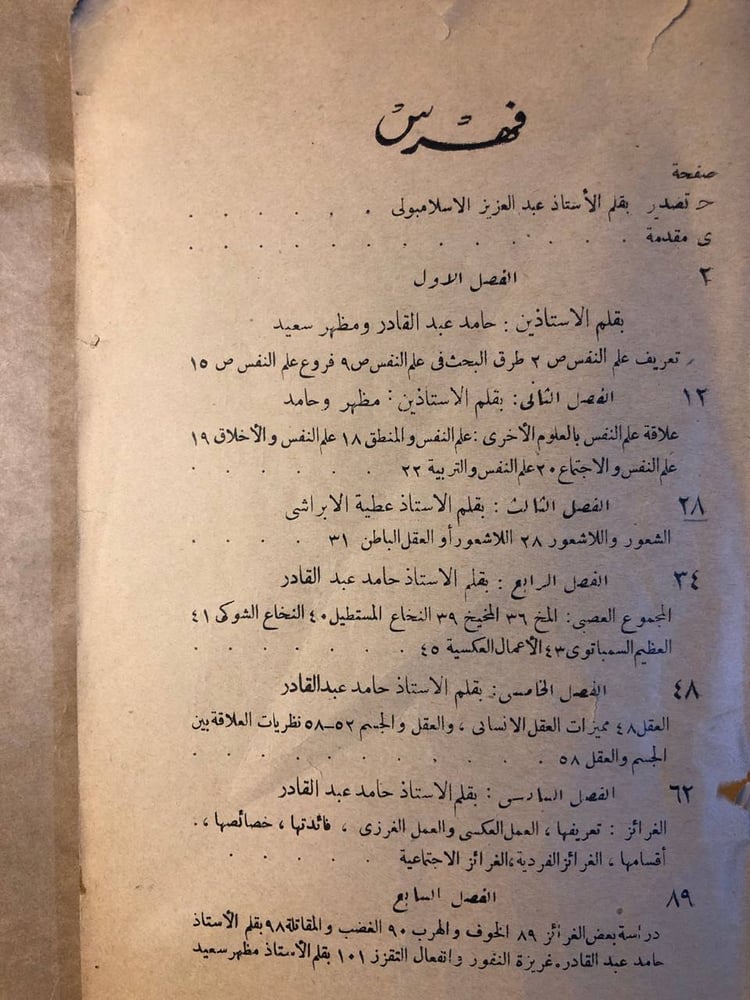 فهرس
صفحة
ح تصدير بقلم الأستاذ عبد العزيز الاسلامبولى . . . . . .
ى مقدمة . . . . . . . . . . . .
٢ الفصل الاول
بقلم الاستاذين : حامد عبد القادر ومظهر سعيد
تعريف علم النفس ص ٢ طرق البحث فى علم النفس ص ٩ فروع علم النفس ص ١٥
١٢ الفصل الثانى : بقلم الاستاذين : مظهر وحامد
علاقة علم النفس بالعلوم الأخرى : علم النفس والمنطق ١٨ علم النفس والأخلاق ١٩
علم النفس والاجتماع ٢٠ علم النفس والتربية ٢٢ . . . . . .
٢٨ الفصل الثالث : بقلم الاستاذ عطية الابراشى
الشعور واللاشعور ٢٨ اللاشعور أو العقل الباطن ٣١ . . . .
٣٤ الفصل الرابع : بقلم الاستاذ حامد عبد القادر
المجموع العصبى : المخ ٣٦ المخيخ ٣٩ النخاع المستطيل ٤٠ النخاع الشوكى ٤١
العظيم السمباتوى ٤٣ الأعمال العكسية ٤٥ . . . . . . .
٤٨ الفصل الخامس : بقلم الاستاذ حامد عبد القادر
العقل ٤٨ مميزات العقل الانسانى ، والعقل والجسم ٥٢–٥٨ نظريات العلاقة بين
الجسم والعقل ٥٨ . . . . . . . . . . .
٦٢ الفصل السادس : بقلم الاستاذ حامد عبد القادر
الغرائز : تعريفها ، العمل العكسى والعمل الغرزى ، فائدتها ، خصائصها ، .
أقسامها ، الغرائز الفردية ، الغرائز الاجتماعية . . . . . .
٨٩ الفصل السابع
دراسة بعض الغرائز ٨٩ الخوف والهرب ٩٠ الغضب والمقاتلة ٩٨ بقلم الأستاذ
حامد عبد القادر . غريزة النفور وانفعال التقزز ١٠١ بقلم الأستاذ مظهر سعيد